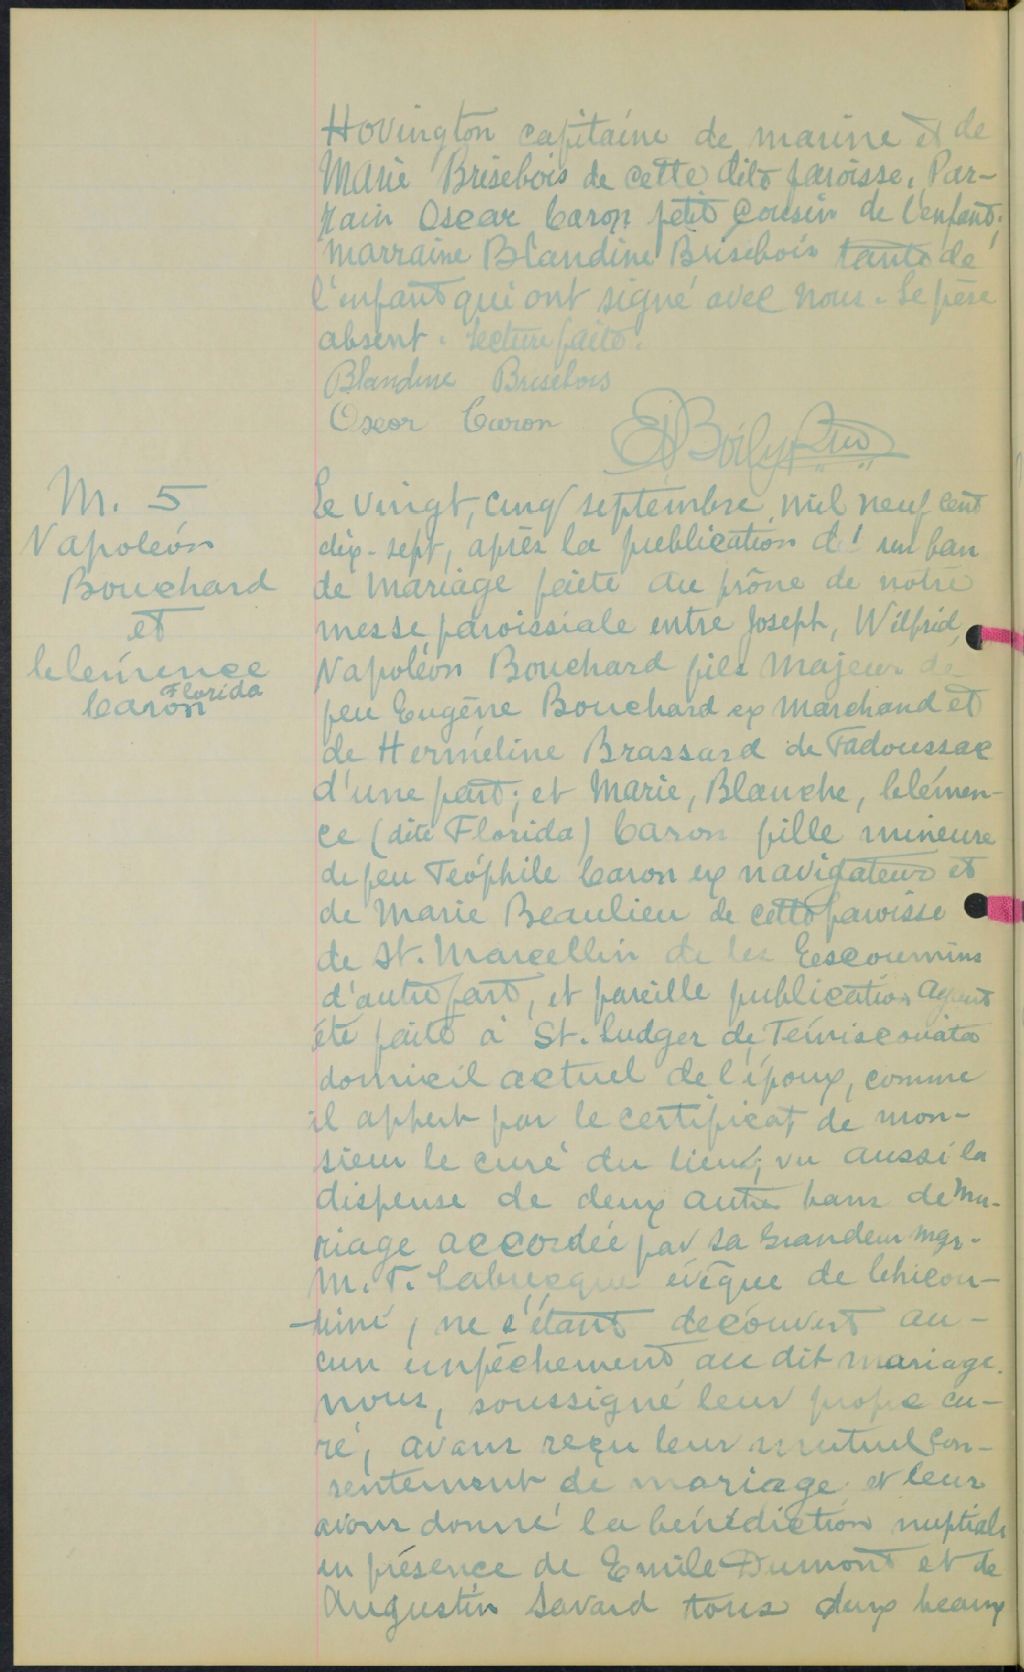 Hovington capitaine de marine et de
Marie Brisebois de cette dite paroisse. Par-
rain Oscar Caron petit cousin de l'enfant;
marraine Blandine Brisebois tante de
l'enfant qui ont signé avec nous. Le père
absent. Lecture faite.
Blandine Brisebois
Oscar Caron
Boily Ptre
M. 5
Napoléon
Bouchard
et
Clémence
Florida
Caron
Le vingt, cinq septembre mil neuf cent
dix-sept, après la publication d'un ban
de mariage faite au prône de notre
messe paroissiale entre Joseph, Wilfrid,
Napoléon Bouchard fils majeur de
feu Eugène Bouchard ex marchand et
de Herméline Brassard de Tadoussac
d'une part; et Marie, Blanche, Clémen-
ce (dite Florida) Caron fille mineure
de feu Teóphile Caron ex navigateur et
de Marie Beaulieu de cette paroisse
de St. Marcellin de les Escoumins
d'autre part, et pareille publication ayant
été faite à St. Ludger de Témiscouata
domicil actuel de l'époux, comme
il appert par le certificat de mon-
sieur le curé du lieu; vu aussi la
dispense de deux autres bans de ma-
riage accordée par Sa Grandeur Mgr.
M. T. Labrecque évêque de Chicou-
timi, ne s'étant découvert au-
cun empêchement au dit mariage.
nous, soussigné leur propre cu-
ré, avons reçu leur mutuel con-
sentement de mariage et leur
avons donné la bénédiction nuptiale
en présence de Emile Dumont et de
Augustin Savard tous deux beaux